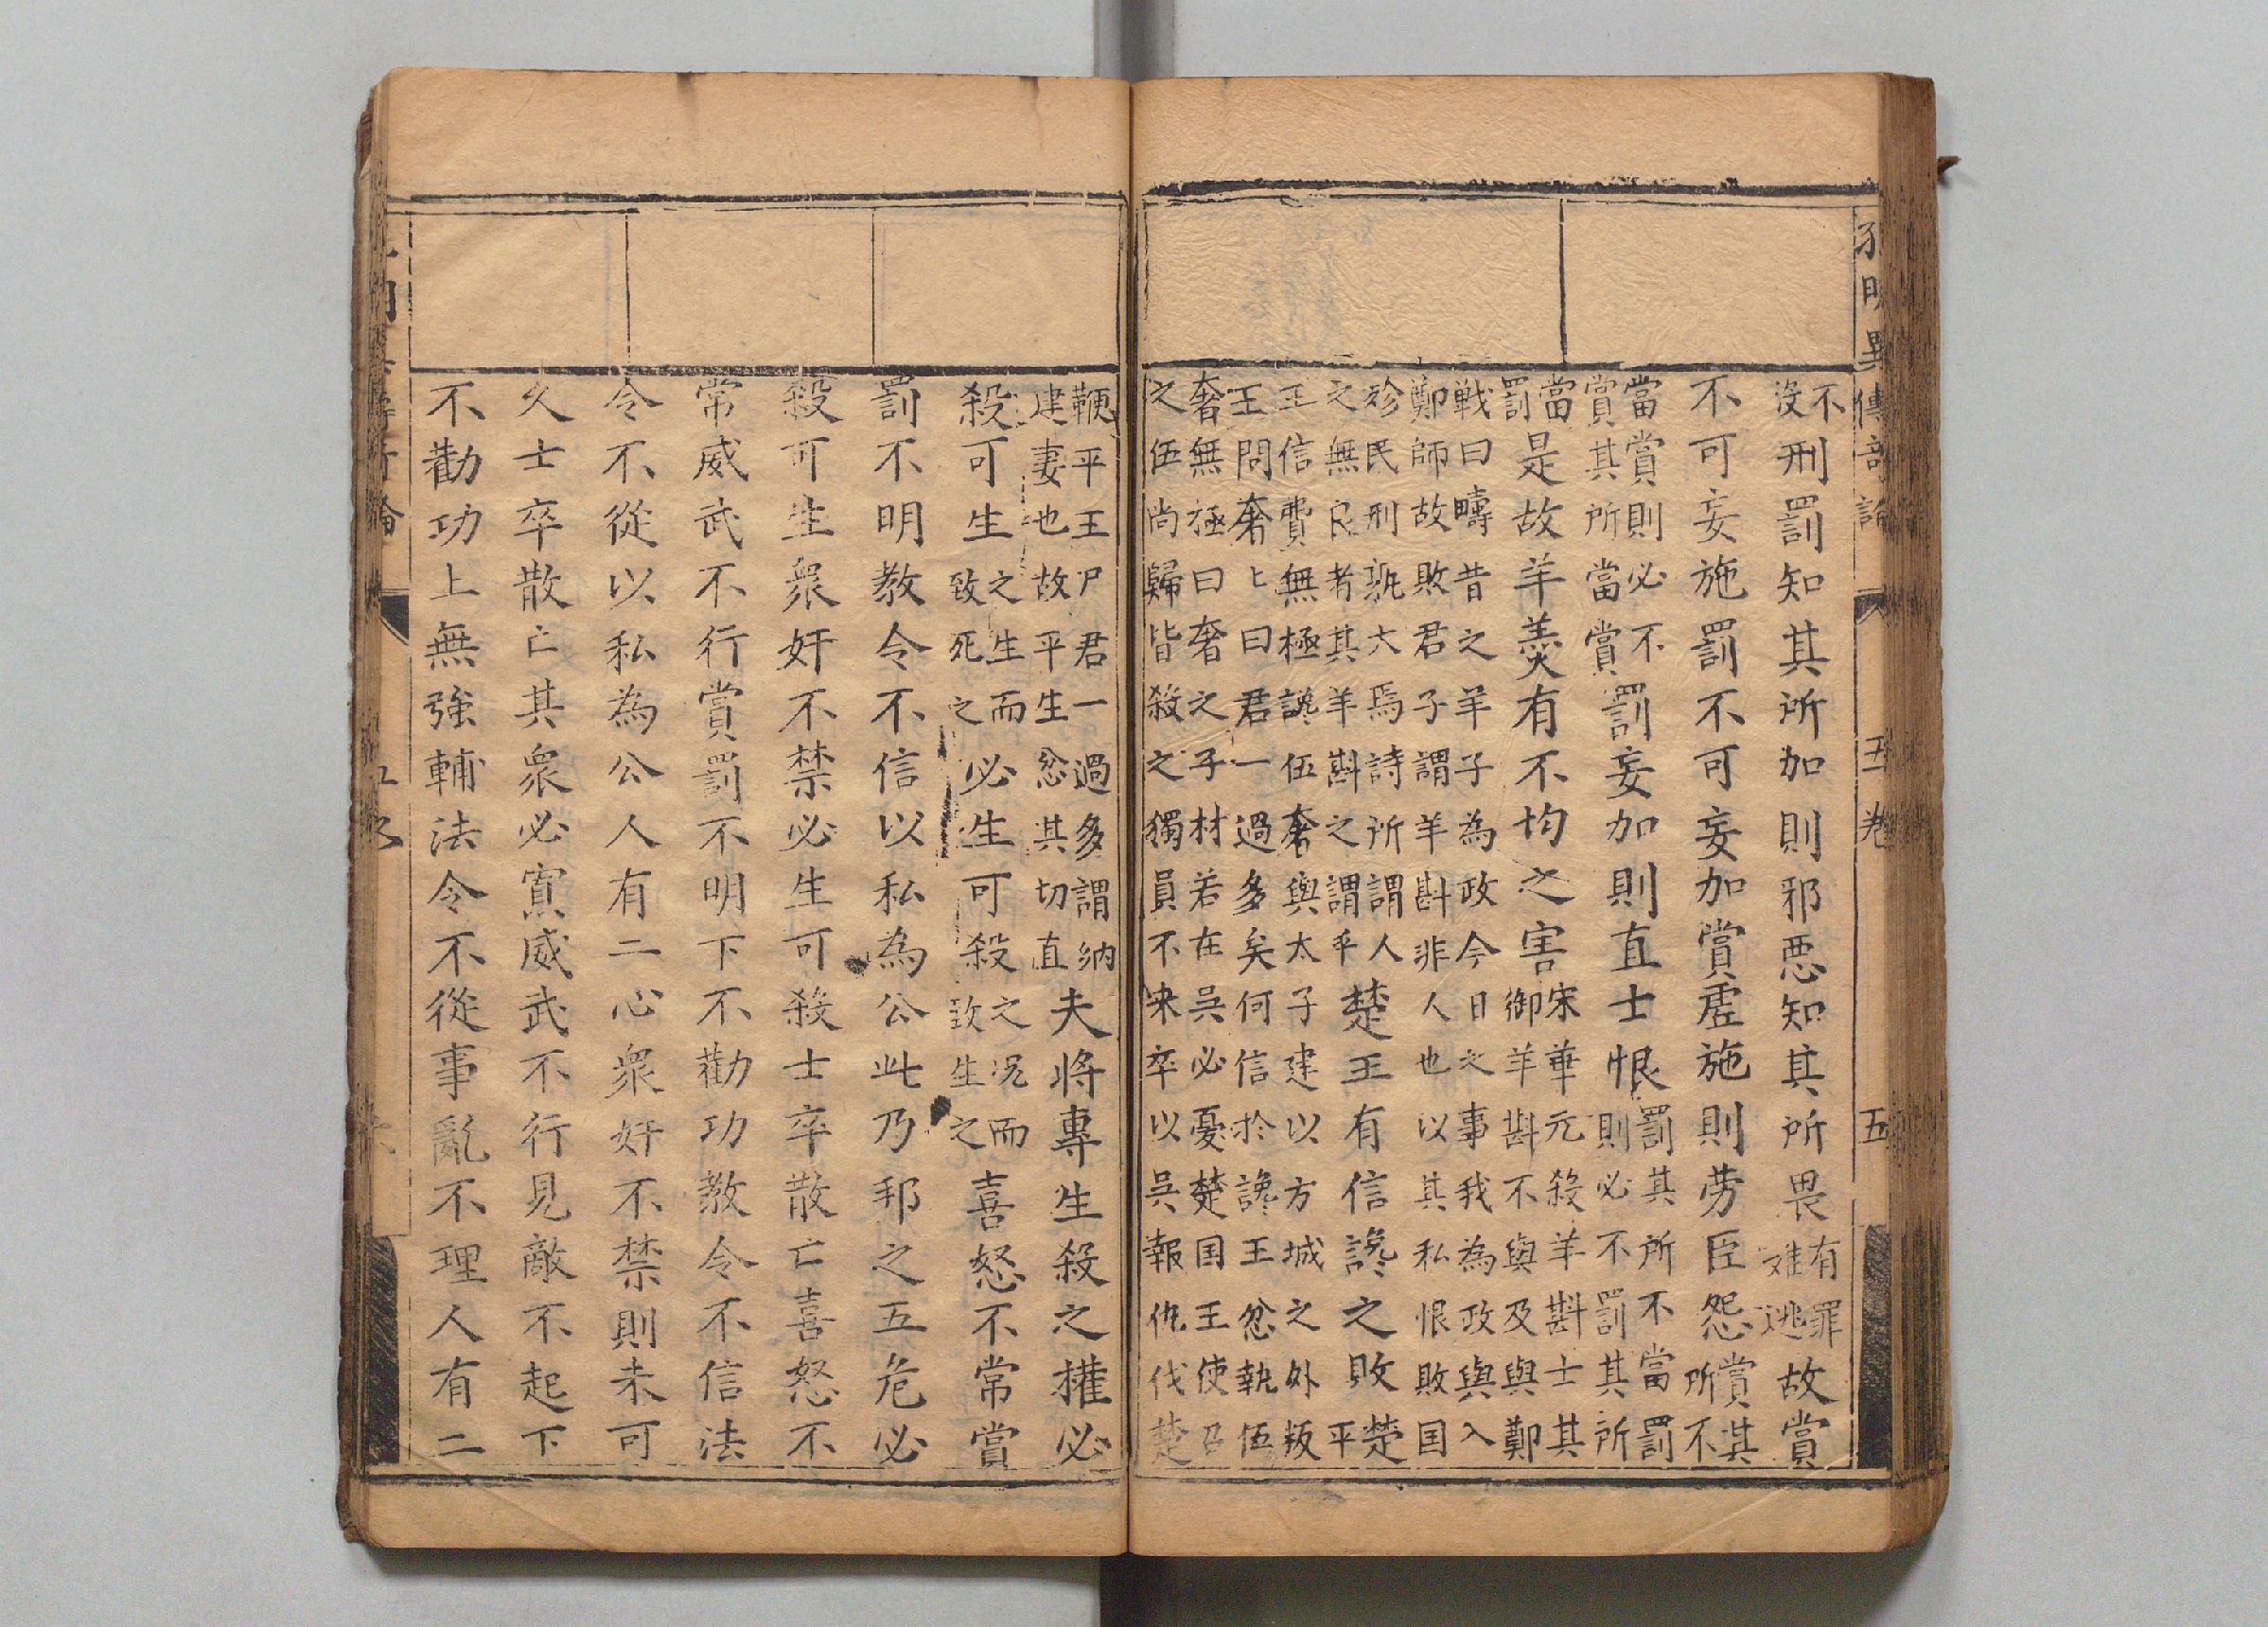 不
沒刑罰知其所加則邪惡知其所畏有罪難逃故賞
不可妄施罰不可妄加賞虛施則勞臣怨賞其所不
當賞則必不賞其所當賞罰妄加則直士恨罰其所不當罰則必不罰其所
當罰是故羊羹有不均之害宋華元殺羊斟士其御羊斟不與及與鄭
戰曰疇昔之羊子為政今日之事我為政與入鄭師故敗君子謂羊斟非人也以其私恨敗国
殄民刑孰大焉詩所謂人之無良者其羊斟之謂乎楚王有信讒之敗楚平
王信費無極讒伍奢與太子建以方城之外叛王問奢匕曰君一過多矣何信於讒王忿執伍
奢無極曰奢之子材若在吳必憂楚国王使召之伍尚歸皆殺之獨員不来卒以吳報仇伐楚
鞭平王尸君一過多謂納建妻也故平生忿其切直夫將專生殺之權必
殺可生之生而致死之必生可殺之况而致生之喜怒不常賞
罰不明教令不信以私為公此乃邦之五危必
殺可生衆奸不禁必生可殺士卒散亡喜怒不
常威武不行賞罰不明下不勸功教令不信法
令不從以私為公人有二心衆奸不禁則未可
久士卒散亡其衆必寡威武不行見敵不起下
不勸功上無強輔法令不從事亂不理人有二